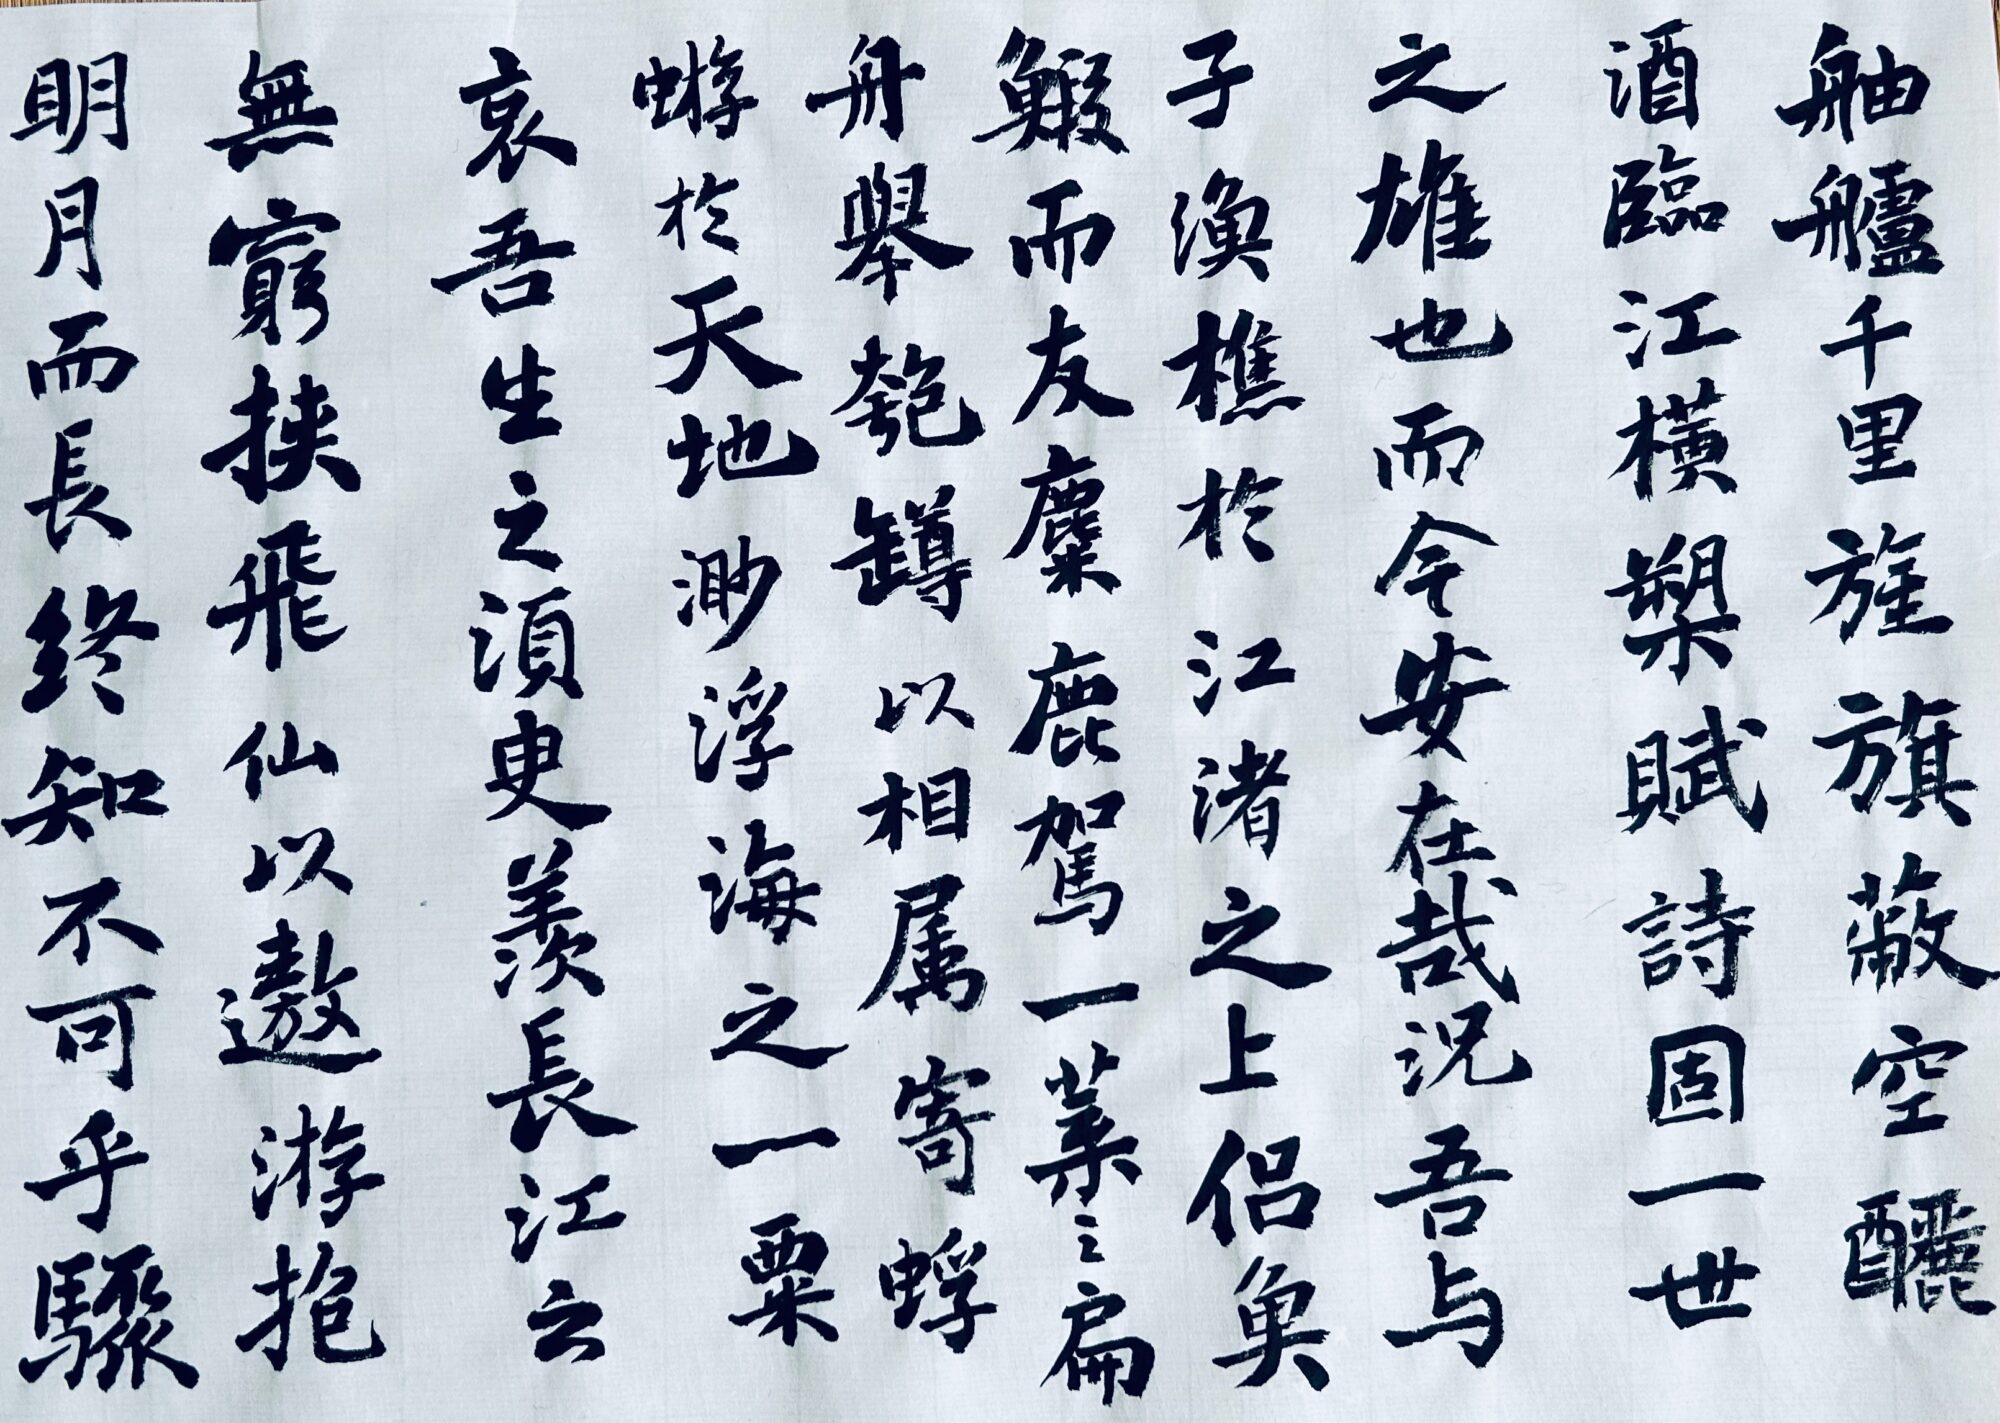 舳艫千里旌旗蔽空釃
酒臨江橫槊賦詩固一世
之雄也而今安在哉況吾与
子漁樵於江渚之上侶魚
鰕而友麋鹿駕一葉之扁
舟舉匏罇以相属寄蜉
蝣於天地渺浮海之一粟
哀吾生之須臾羨長江之
無窮挾飛仙以遨游抱
明月而長終知不可乎驟